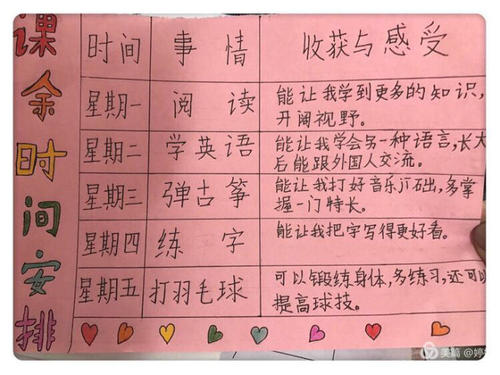 课余时间安排
时间 事情 收获与感受
星期一 阅读 能让我学到更多的知识,
开阔视野。
星期二 学英语 能让我学会另一种语言,长大
后能跟外国人交流。
星期三 弹古筝 能让我打好音乐基础,多掌
握一门特长。
星期四 练字 能让我把字写得更好看。
星期五 打羽毛球 可以锻练身体,多练习,还可以
提高球技。
美篇 @婷